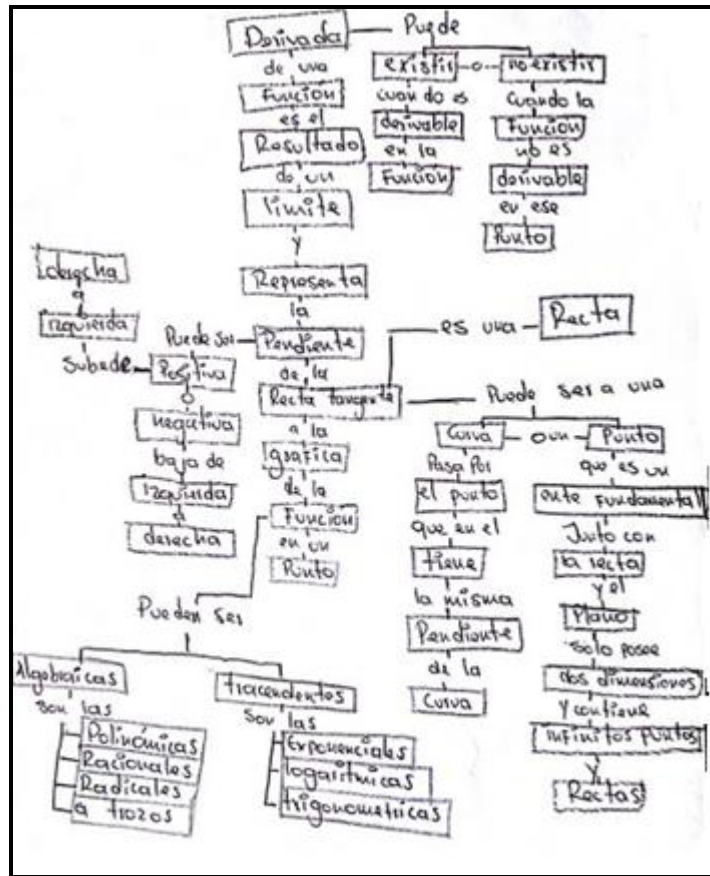 Derivada
Puede
de una
Función
es el
Resultado
de un
límite
y
Representa
la
Pendiente
de la
Recta tangente
a la
gráfica
de la
Función
en un
Punto
existir o no existir
cuando es
derivable
en la
Función
Cuando la
Función
no es
derivable
en ese
Punto
Puede ser
Positiva
sube de
izquierda
a
derecha
o
negativa
baja de
izquierda
a
derecha
es una
Recta
Puede ser a una
Curva
o un
Punto
Pasa Por
el punto
que en el
tiene
la misma
Pendiente
de la
Curva
que es un
ente Fundamental
Junto con
la recta
y el
Plano
solo posee
dos dimensiones
y contiene
infinitos puntos
y
Rectas
Pueden ser
Algebraicas
son las
Polinómicas
Racionales
Radicales
a trozos
tracendentes
son las
Exponenciales
logaritmicas
trigonometricas